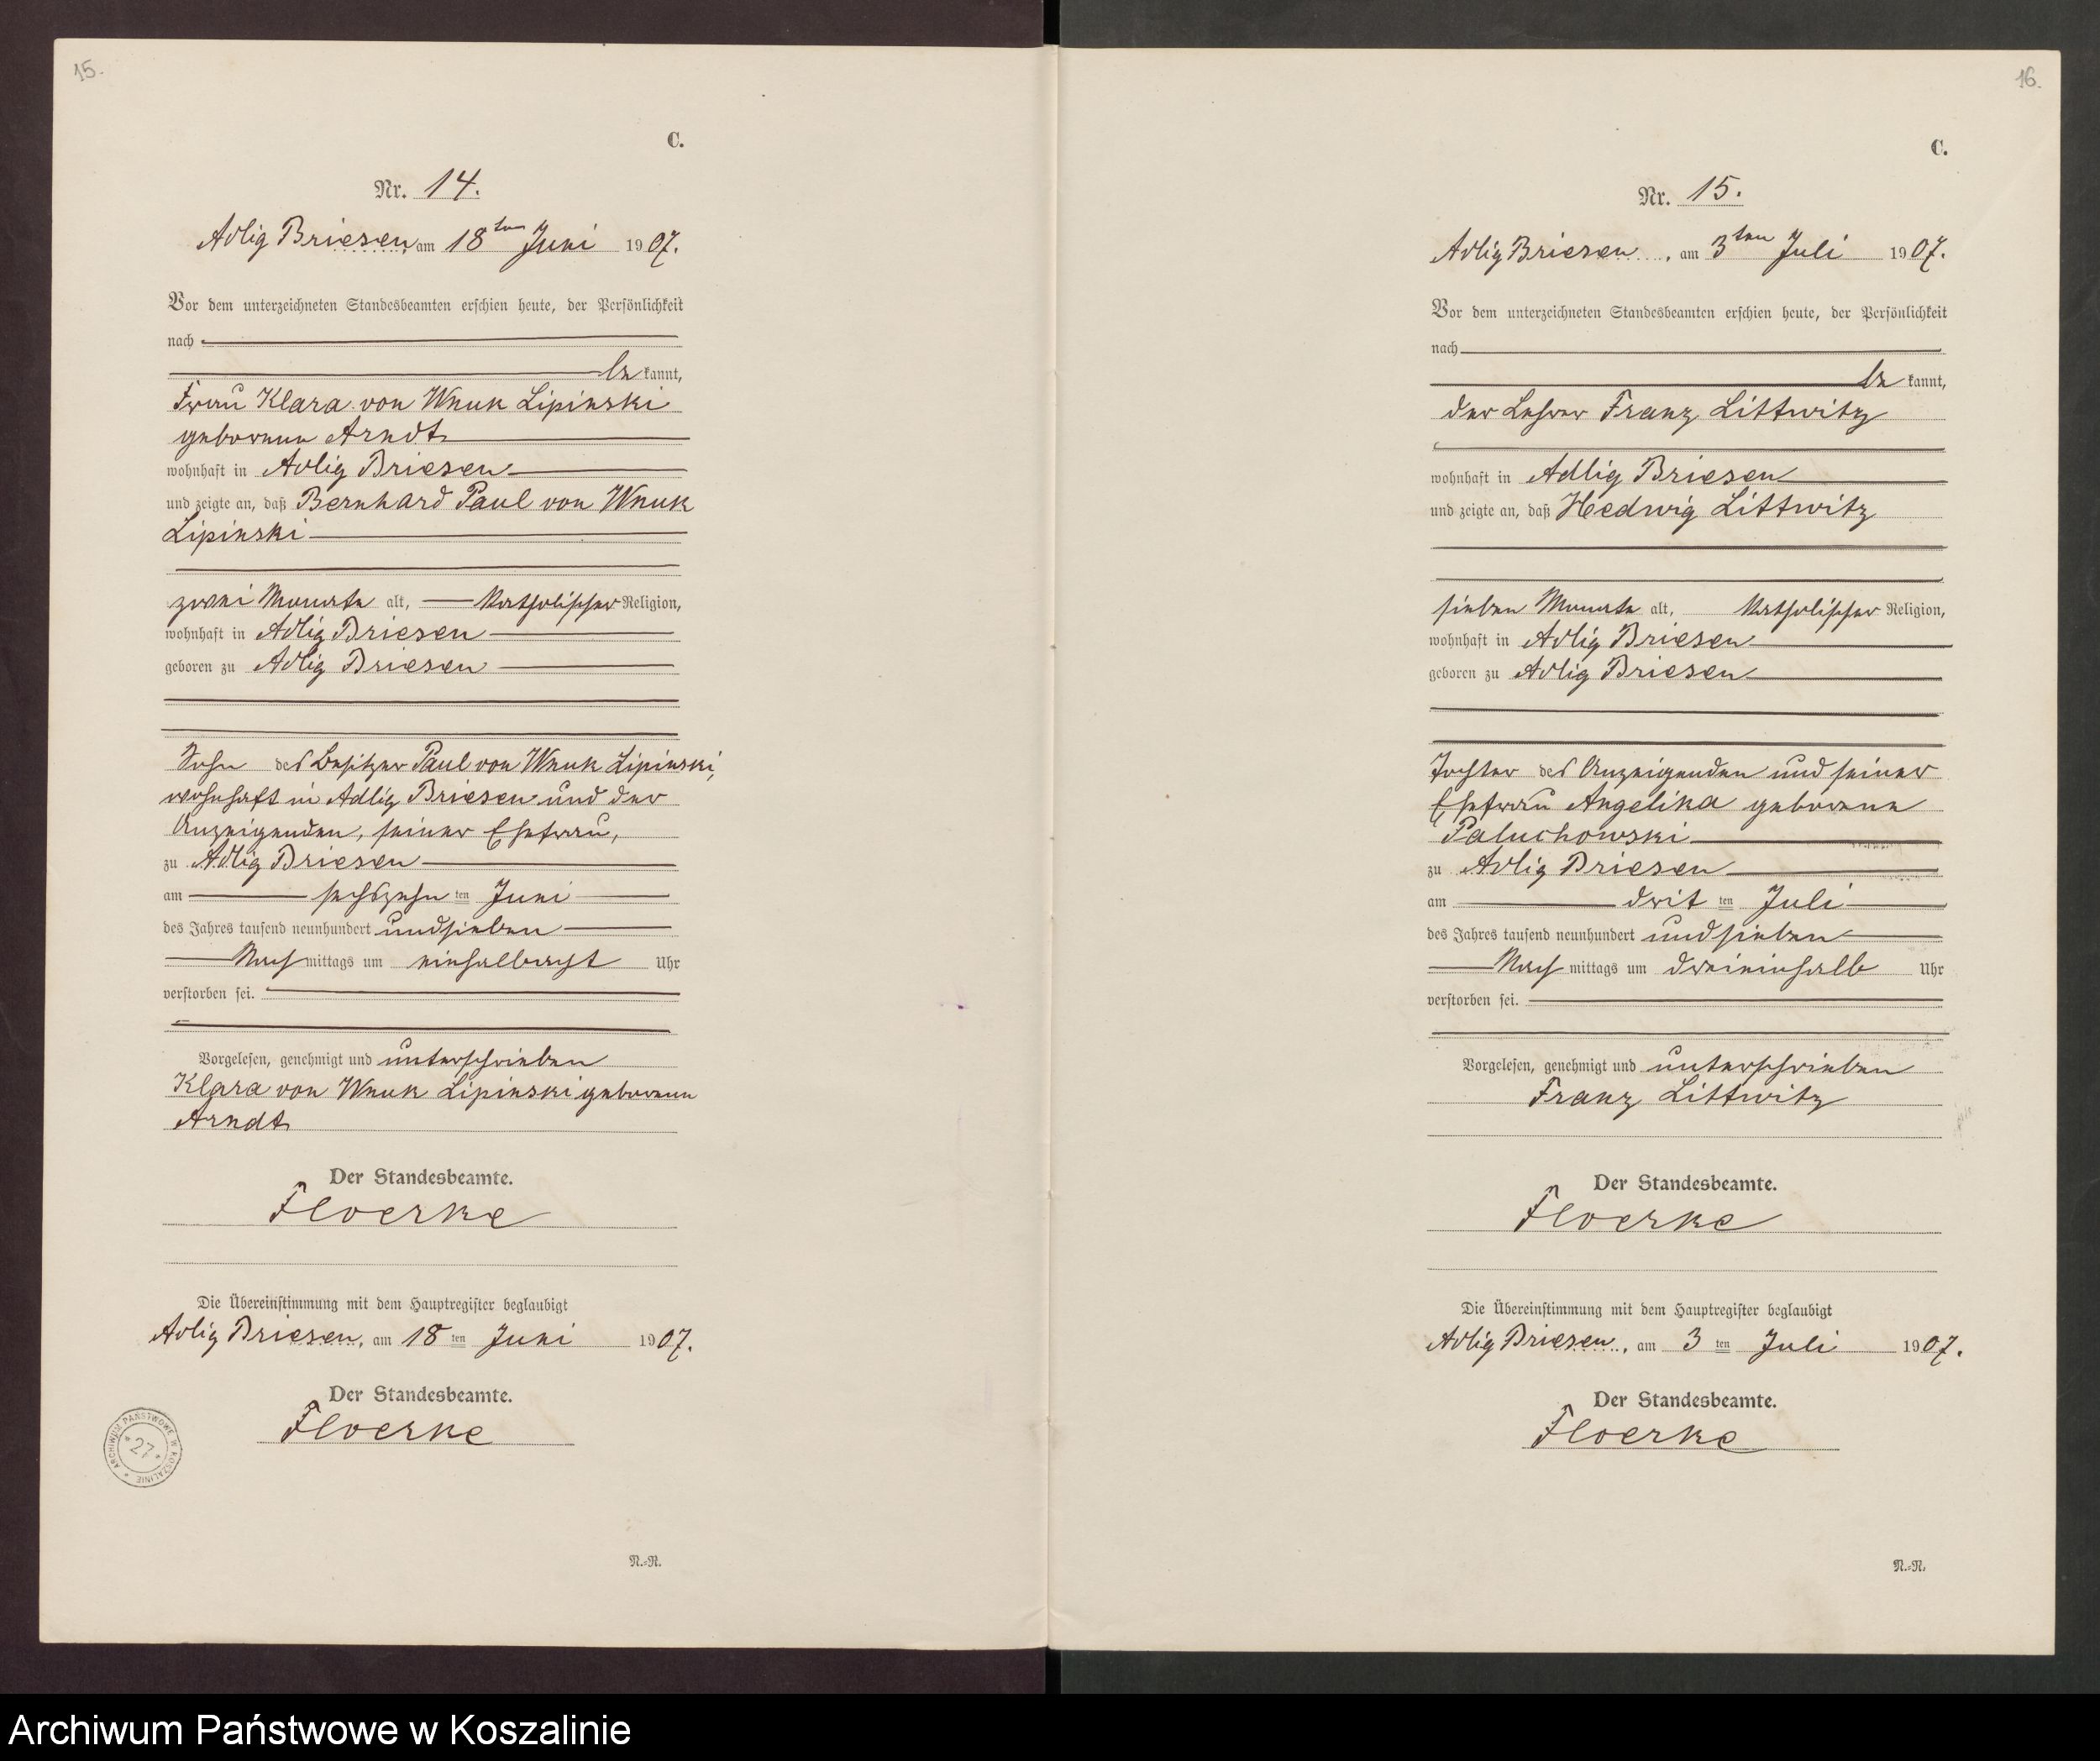 15.
C.
Nr. 14.
Adlig Briesen, am 18ten Juni 1907.
Vor dem unterzeichneten Standesbeamten erschien heute, der Persönlichkeit
nach
be kannt,
Frau Klara von Wnuk Lipinski
geborene Arndt
wohnhaft in Adlig Briesen
und zeigte an, daß Bernhard Paul von Wnuk
Lipinski
zwei Monate alt, katholischer Religion,
wohnhaft in Adlig Briesen
geboren zu Adlig Briesen
Sohn des Besitzer Paul von Wnuk Lipinski,
wohnhaft in Adlig Briesen und der
Anzeigenden, seiner Ehefrau,
zu Adlig Briesen
am sechszehn ten Juni
des Jahres tausend neunhundert und sieben
Nach mittags um einhalbacht Uhr
verstorben sei.
Vorgelesen, genehmigt und unterschrieben
Klara von Wnuk Lipinski geborene
Arndt
Der Standesbeamte.
Floerke
Die Übereinstimmung mit dem Hauptregister beglaubigt
Adlig Briesen, am 18 ten Juni 1907.
Der Standesbeamte.
Floerke
ARCHIWUM PAŃSTWOWE W KOSZALINIE
* 27 *
N.-R.
16.
C.
Nr. 15.
Adlig Briesen, am 3ten Juli 1907.
Vor dem unterzeichneten Standesbeamten erschien heute, der Persönlichkeit
nach
be kannt,
der Lehrer Franz Littwitz
wohnhaft in Adlig Briesen
und zeigte an, daß Hedwig Littwitz
sieben Monate alt, katholischer Religion,
wohnhaft in Adlig Briesen
geboren zu Adlig Briesen
Tochter des Anzeigenden und seiner
Ehefrau Angelika geborene
Paluchowski
zu Adlig Briesen
am drit ten Juli
des Jahres tausend neunhundert und sieben
Nach mittags um dreieinhalb Uhr
verstorben sei.
Vorgelesen, genehmigt und unterschrieben
Franz Littwitz
Der Standesbeamte.
Floerke
Die Übereinstimmung mit dem Hauptregister beglaubigt
Adlig Briesen, am 3 ten Juli 1907.
Der Standesbeamte.
Floerke
N.-R.
Archiwum Państwowe w Koszalinie